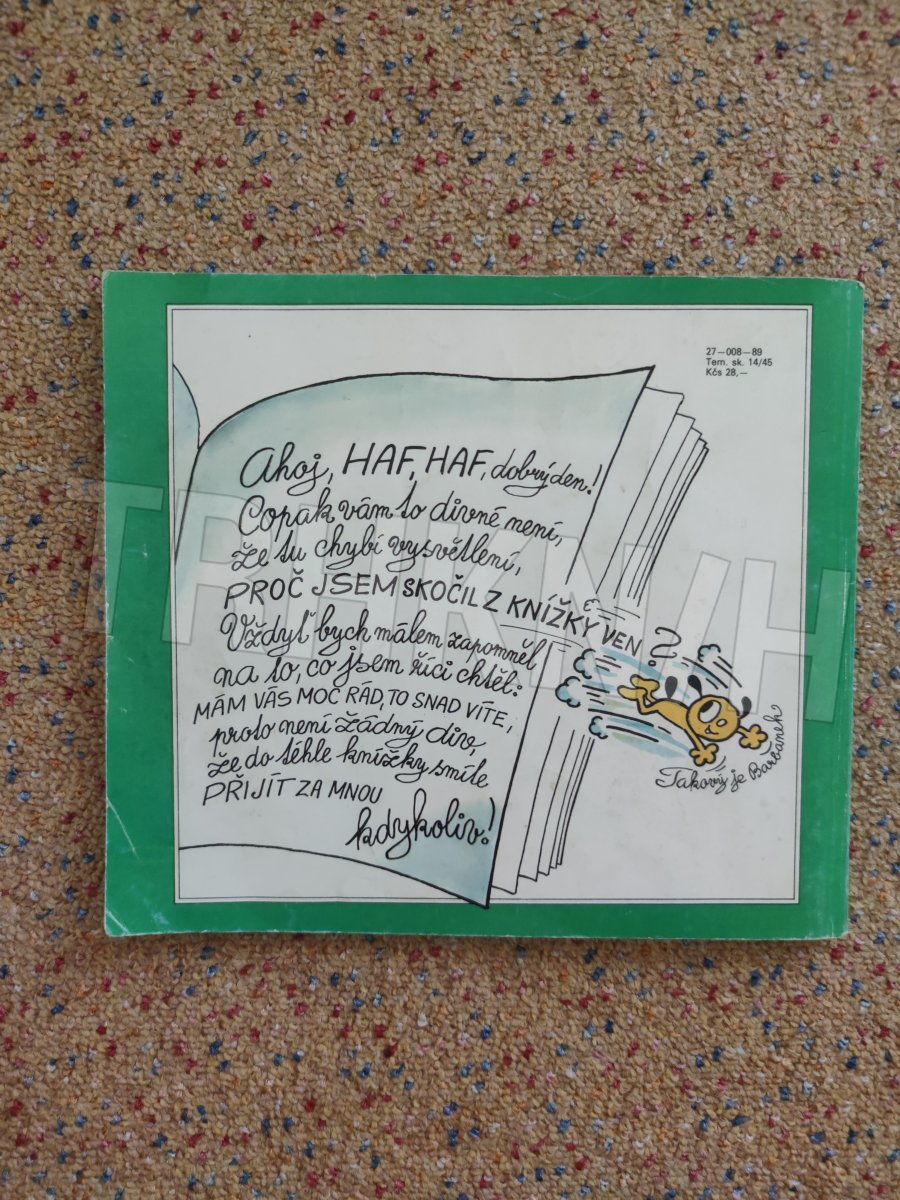 27—008—89
Tem. sk. 14/45
Kčs 28,—
Ahoj, HAF, HAF, dobrý den!
Copak vám to divné není,
že tu chybí vysvětlení,
PROČ JSEM SKOČIL Z KNÍŽKY VEN?
Vždyť bych málem zapomněl
na to, co jsem říci chtěl:
MÁM VÁS MOC RÁD, TO SNAD VÍTE,
proto není žádný div,
že do téhle knížky smíte
PŘIJÍT ZA MNOU
kdykoliv!
Takový je Barbánek
TRHKNIH